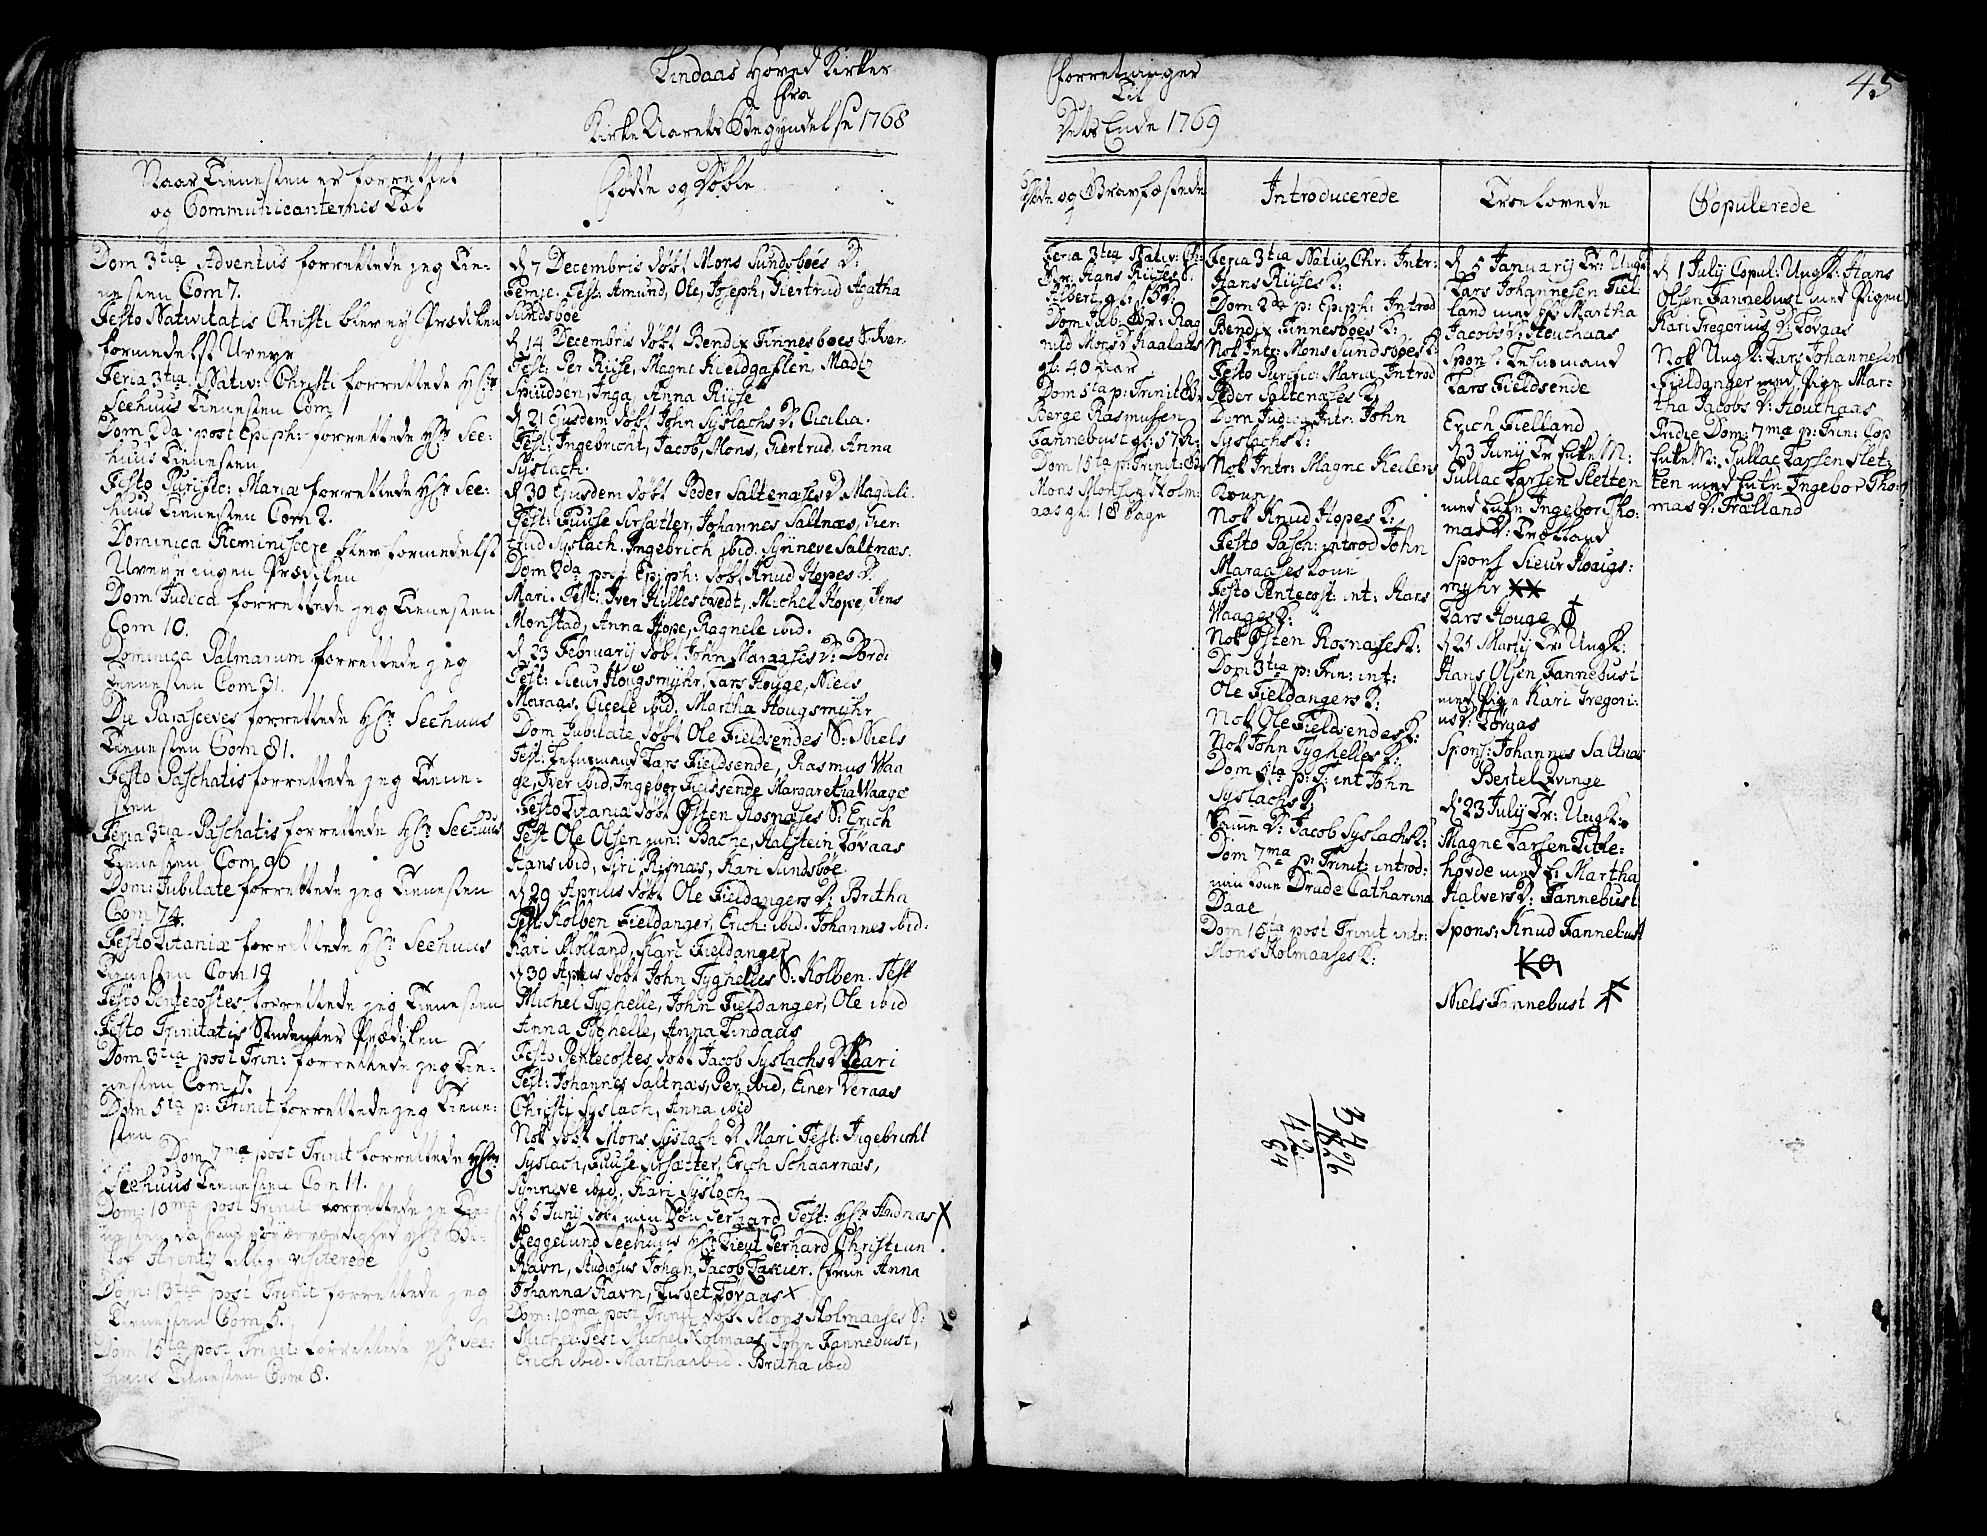 Lindaas Hoved Kirkes
fra
Kirke Aarets Begyndelse 1768
Naar Tienesten er forrettet
og Communicanternes Tal
Dom 3tia Adventus forrettede jeg Tie-
nesten Com 7.
Festo Nativitatis Christi blev ej Prædiken
formedelst Uveyr
Feria 3tia Nativ: Christi forrettede Hr
Seehuus Tienesten Com 1
Dom 2da post Epiph: forrettede Hr See-
huus Tienesten
Festo Purific: Mariæ forrettede Hr See-
huus Tienesten Com 2.
Dominica Reminiscere blev formedelst
Uveyr ingen Prædiken
Dom Judica forrettede jeg Tienesten
Com 10.
Dominica Palmarum forrettede jeg
Tienesten Com 31.
Die Parasceves forrettede Hr Seehuus
Tienesten Com 81.
Festo Paschatis forrettede jeg Tiene-
sten
Feria 3tia Paschatis forrettede Hr Seehuus
Tienesten Com 96
Dom: Jubilate forrettede jeg Tienesten
Com 74.
Festo Litaniæ forrettede Hr Seehuus
Tienesten Com 19
Festo Pentecostes forrettede jeg Tienesten
Festo Trinitatis Studenter Prædiken
Dom 3tia post Trin: forrettede jeg Tie-
nesten Com 7.
Dom 5ta p: Trinit forrettede jeg Tiene-
sten
Dom 7ma post Trinit forrettede Hr
Seehuus Tienesten Com 11.
Dom: 10ma post Trinit forrettede jeg Tie-
nesten, da Hans Høyærværdighed Hr Bi-
sop Arentz visiterede
Dom: 13tia post Trinit forrettede jeg
Tienesten Com 5.
Dom 15ta post Trinit: forrettede Hr See-
huus Tienesten Com 8.
Fødde og Døbte
d 7 Decembris døbt Mons Sundsbøes D:
Test: Amund, Ole, Joseph, Giertrud Agatha
Sundsbøe
d 14 Decembris døbt Bendix Finnesbøes S: Iver
Test: Per Riise, Magne Kieldgasten, Madtz
Spiudøen, Inga, Anna Riise
d 21 Ejusdem døbt John Syslachs D: Cicilia.
Test: Ingebricht, Jacob, Mons, Giertrud, Anna
Syslach.
d 30 Ejusdem døbt Peder Saltenæses D: Magdli
Test: Fuuse Sirsætter, Johannes Saltnæs, Gier-
trud Syslach, Ingebrich ibid. Synneve Saltnæs.
Dom 2da post Epiph: døbt Knud Hopes D:
Mari. Test: Iver Hillestvedt, Michel Hope, Jens
Monstad, Anna Hope, Ragnele ibid.
d 23 February døbt John Maraases D: Dord:
Test: Sieur Hougsmyhr, Lars Houge, Niels
Maraas, Cicele ibid. Martha Hougsmyhr
Dom Jubilate døbt Ole Fieldsendes S: Niels
Test: Lars Fieldsende, Rasmus Waa
ge, Iver ibid, Ingebor Fieldsende Margaretha Waage
Festo Litania døbt Østen Rosnæses S: Erich
Test Ole Olsen Bache, Halstein Løvaas
Hans ibid, Siri Risnæs, Kari Sundsbøe
d 29 Aprilis døbt Ole Fieldangers D: Britha
Test: Kolben Fieldanger, Erich: ibid. Johannes ibid.
Kari Molland, Kari Fieldanger
d 30 Aprilis døbt John Tyghelles S: Kolben. Test
Michel Tyghelle, John Fieldanger, Ole ibid
Anna Tyghelle, Anna Lindaas
Festo Pentecostes døbt Jacob Syslachs D: Kari
Test: Johannes Saltnæs, Per ibid, Einer Veraas
Christi Syslach, Anna ibid
Nok døbt Mons Syslach D: Mari Test: Ingebricht
Syslach, Fuuse Sirsætter, Erich Schaarnæs,
Synneve ibid. Kari Syslach
d 5 Junij døbt min Søn Gerhard Test: Hr Andreas X
Heggelund Seehuus Hr Lieut Gerhard Christian
Ravn, Studiosus Johan Jacob Frue Anna
Johanna Ravn, Lisbet Løvaas X
Dom: 10ma post Trinit døbt Mons Holmaases S:
Michel: Test Michel Holmaas, John Fannebust,
Erich ibid. Martha ibid. Britha ibid
Forretninger
Til
Dets Ende 1769
45
Døde og Gravfæstede
Feria 3tia Nativ: Ch:
Begr. Hans Riises S:
Dom Jub: Begr: Rag
nild Mons D Kaalaas
gl: 40 Aar
Dom 5ta p: Trinit Bgr
Berge Rasmussen
Fannebust gl: 57 A:
Dom 15ta p: Trinit: Bgr
Mons Monsen Holm
aas gl: 18 Dage
Introducerede
Feria 3tia Nativ Chr: Intr:
Hans Riises K:
Dom 2da p: Epiph: Introd
Bendix Finnesbøes K:
Nok Intr: Mons Sundsbøes K:
Festo Purific: Mariæ Introd
Peder Saltenæses K:
Dom Judic: Intr: John
Syslachs K:
Nok Intr: Magne Keilens
Kone
Nok Knud Hopes K:
Festo Pasch: introd John
Maraases Kone
Festo Pentecost: int: Hans
Waages K:
Nok Østen Rosnæses K:
Dom 3tia p: Trin: int:
Ole Fieldangers K:
Nok Ole Fieldsendes K:
Nok John Tyghelles K:
Dom 5ta p: T: int John
Syslachs K:
Samme D: Jacob Syslachs K:
Dom 7ma p: Trinit: introd:
min Kone Drude Catharina
Daae
Dom 15ta post Trinit intr:
Mons Holmaases K:
3496
1826
42
84
Troelovede
d 5 January Tr: Ungk
Lars Johannesen Fiel
land med P: Martha
Jacobs D: Houthaas
Spon:
Lars Fieldsende
Erich Fielland
d 3 Junij Tr Enke M:
Gullac Larsen Sletten
med Enke Ingebor Tho:
mas D: Trølland
Spons Sieur Hougs:
myhr XX
Lars Houge
d 25 Martij Tr: Ungk:
Hans Olsen Fannebust
med Pige Kari Gregori:
us D: Løvaas
Spons: Johannes Saltnæs
Bertel Evinge
d 23 July Tr: Ungk:
Magne Larsen Litle:
hovde med P: Martha
Halvers D: Fannebust
Spons: Knud Fannebust
Niels Fannebust
Copulerede
d 1 July Copul: Ungk: Hans
Olsen Fannebust med Pigen
Kari Gregorius D: Løvaas
Nok Ungk: Lars Johannesen
Fieldanger med Pige Mar-
tha Jacobs D: Houthaas
Pridie Dom: 7mæ p: Trin: Cop
Enke M: Gullac Larsen Slet:
ten med Enke Ingebor Tho
mas D: Trælland